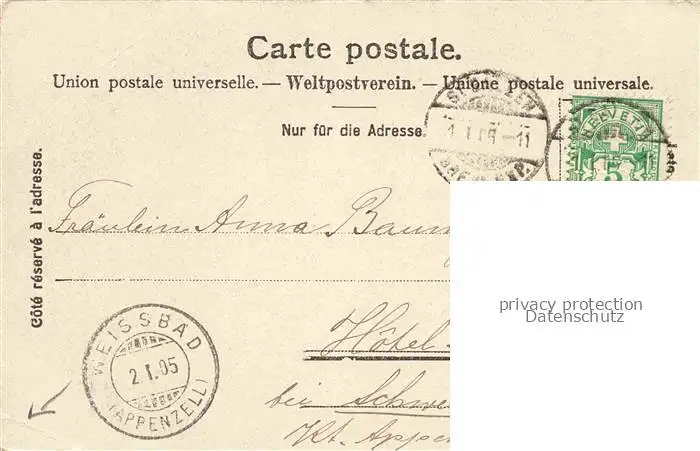 Carte postale.
Union postale universelle. — Weltpostverein. — Unione postale universale.
Nur für die Adresse.
Côté réservé à l'adresse.
HELVETIA
5
Fräulein Anna Baum
Hôtel
bei Schwe
Kt. Appe
WEISSBAD
2.I.05
(APPENZELL)
privacy protection
Datenschutz